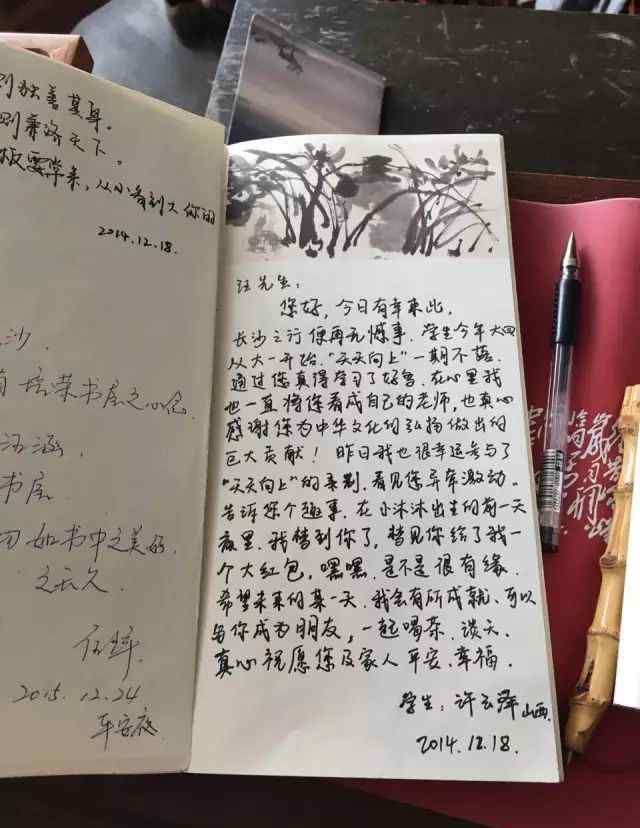 则独善其身。
则兼济天下。
2014.12.18.
沙.
培荣书屋之心愿
汪涵
书屋
如书中之美好.
之云久
2015.12.24
平安夜
汪先生：
您好，今日有幸来此，
长沙之行便再无憾事。学生今年大四
从大一开始，“天天向上”一期不落。
通过您真得学习了好多，在心里我
也一直将您看成自己的老师，也真心
感谢您为中华文化的弘扬做出的
巨大贡献！昨日我也很幸运参与了
“天天向上”的录制，看见您异常激动。
告诉您个趣事，在小沐沐出生的前一天
夜里，我梦到你了，梦见你给了我一
个大红包，嘿嘿，是不是很有缘。
希望未来的某一天，我会有所成就，可以
与你成为朋友，一起喝茶、谈天。
真心祝愿您及家人平安、幸福。
学生：许云泽 山西
2014.12.18.